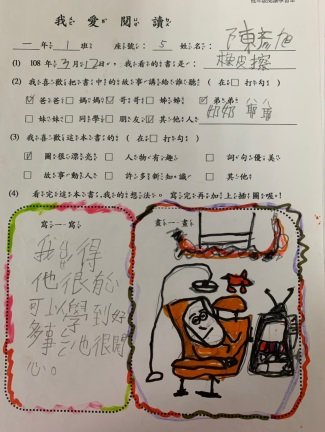 我愛閱讀
一年1班 座號:5 姓名:陳彥旭
(1) 108年3月12日,我看的書是:橡皮擦
(2) 我喜歡把書中的故事講給誰聽?(在□打勾)
☑爸爸 □媽媽 ☑哥哥 □姊姊 ☑弟弟
□妹妹 □同學 □朋友 ☑其他人: 奶奶 爺爺
(3) 我喜歡這本書:(在□打勾)
☑圖很漂亮 □人物有趣 □詞句優美
□故事動人 □許多新知識 □其他
(4) 看完這本書,我的想法。寫完再加上插圖喔!
寫一寫
我覺得
他很有心
可以學到好
多事ㄑㄧㄥˊ他很開
心。
畫一畫